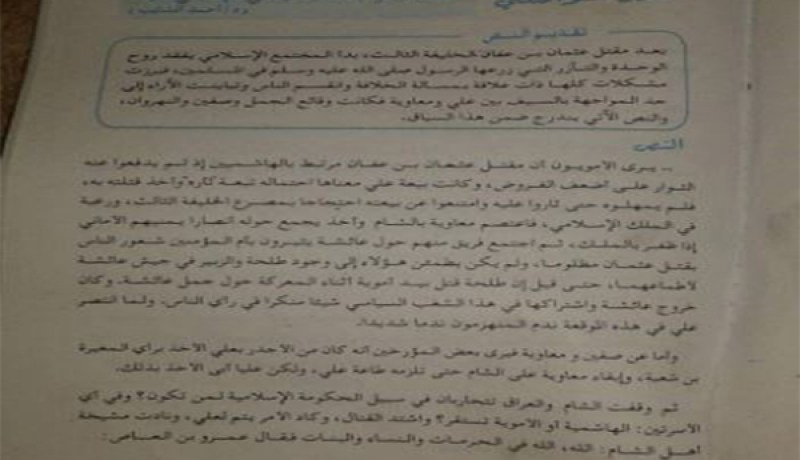 (د/أحمد الشايب)
تقديم النص
بعد مقتل عثمان بن عفان الخليفة الثالث، بدأ المجتمع الإسلامي يفقد روح
الوحدة والتآزر التي زرعها الرسول صلى الله عليه وسلم في المسلمين، فبرزت
مشكلات كلها ذات علاقة بمسألة الخلافة وانقسم الناس وتباينت الآراء إلى
حد المواجهة بالسيف بين علي ومعاوية فكانت وقائع الجمل وصفين والنهروان،
والنص الآتي يندرج ضمن هذا السياق.
النص
.. يرى الأمويون أن مقتل عثمان بن عفان مرتبط بالهاشميين إذ لم يدفعوا عنه
الثوار على أضعف الفروض، وكانت بيعة علي معناها احتماله تبعة كارهة وأخذ قتلته به،
فلم يمهلوه حتى ثاروا عليه وامتنعوا عن بيعته احتجاجا بمصرع الخليفة الثالث، ورغبة
في الملك الإسلامي، فاعتصم معاوية بالشام وأخذ يجمع حوله أنصارا يمنيهم الأماني
إذا ظفر بالملك، ثم اجتمع فريق منهم حول عائشة يثيرون بأم المؤمنين شعور الناس
بقتل عثمان مظلوما، ولم يكن يطمئن هؤلاء إلى وجود طلحة والزبير في جيش عائشة
لأطماعهما، حتى قيل إن طلحة قتل بيد أموية أثناء المعركة حول جمل عائشة. وكان
خروج عائشة واشتراكها في هذا الشغب السياسي شيئا منكرا في رأي الناس. ولما انتصر
علي في هذه الموقعة ندم المنهزمون ندما شديدا.
وأما عن صفين و معاوية فيرى بعض المؤرخين أنه كان من الأجدر بعلي الأخذ برأي المغيرة
بن شعبة، وإبقاء معاوية على الشام حتى تلزمه طاعة علي، ولكن عليا أبى الأخذ بذلك.
ثم وقفت الشام والعراق تتحاربان في سبيل الحكومة الإسلامية لمن تكون؟ وفي أي
الأسرتين: الهاشمية أو الأموية تستقر؟ واشتد القتال، وكاد الأمر يتم لعلي، ونادت مشيخة
أهل الشام: الله، الله في الحرمات والنساء والبنات فقال عمرو بن العاص: